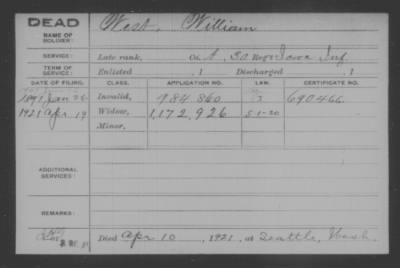 DEAD
NAME OF SOLDIER:
West, William
SERVICE:
Late rank, Co. A, 30 Reg't Iowa Inf.
TERM OF SERVICE:
Enlisted , 1 Discharged , 1
DATE OF FILING. CLASS. APPLICATION NO. LAW. CERTIFICATE NO.
1891 Jan 26 Invalid, 984 860 690466
1921 Apr 19 Widow, 1,172,926 5-1-20
Minor,
ADDITIONAL SERVICES:
REMARKS:
Died Apr 10, 1921, at Seattle, Wash.